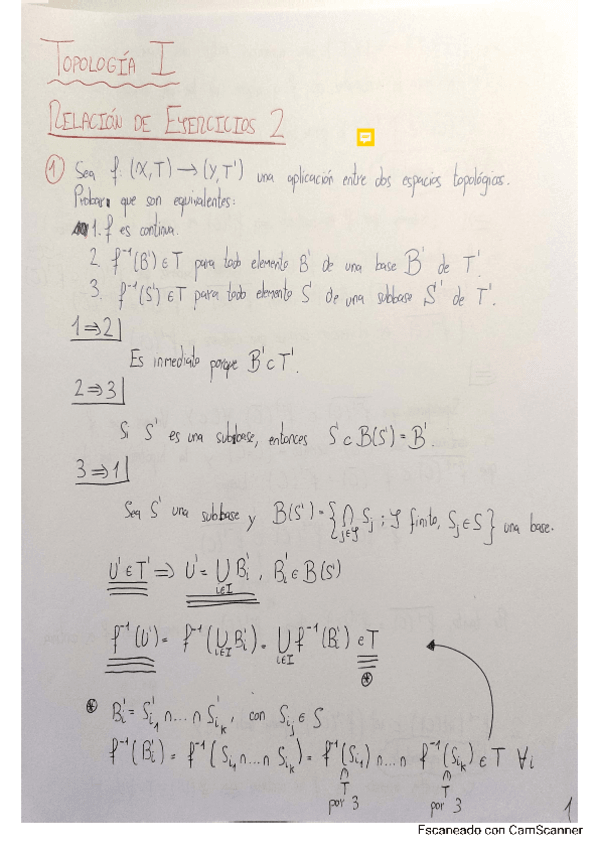 TOPOLOGÍA I
RELACIÓN DE EJERCICIOS 2
① Sea f: (X,T) → (Y,T') una aplicación entre dos espacios topológicos.
Probar que son equivalentes:
1. f es continua.
2. f⁻¹(B') ∈ T para todo elemento B' de una base B' de T'.
3. f⁻¹(S') ∈ T para todo elemento S' de una subbase S' de T'.
1⇒2|
Es inmediato porque B' ⊂ T'.
2⇒3|
Si S' es una subbase, entonces S' ⊂ B(S') = B'.
3⇒1|
Sea S' una subbase y B(S') = {⋂_{j∈J} S_j ; J finito, S_j ∈ S} una base.
U' ∈ T' ⇒ U' = ⋃_{i∈I} B_i', B_i' ∈ B(S')
f⁻¹(U') = f⁻¹(⋃_{i∈I} B_i') = ⋃_{i∈I} f⁻¹(B_i') ∈ T
⊛
⊛ B_i' = S_{i_1}' ∩ ... ∩ S_{i_k}', con S_{i_j} ∈ S
f⁻¹(B_i') = f⁻¹(S_{i_1} ∩ ... ∩ S_{i_k}) = f⁻¹(S_{i_1}) ∩ ... ∩ f⁻¹(S_{i_k}) ∈ T ∀i
∩ ∩
T T
por 3 por 3
1
Escaneado con CamScanner